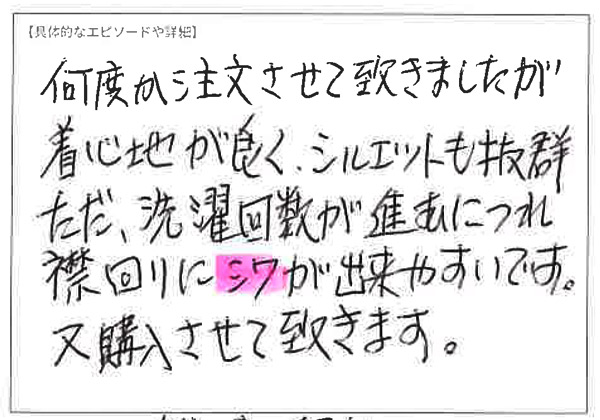 【具体的なエピソードや詳細】
何度か注文させて致きましたが
着心地が良く、シルエットも抜群
ただ、洗濯回数が進むにつれ
襟回りにシワが出来やすいです。
又購入させて致きます。